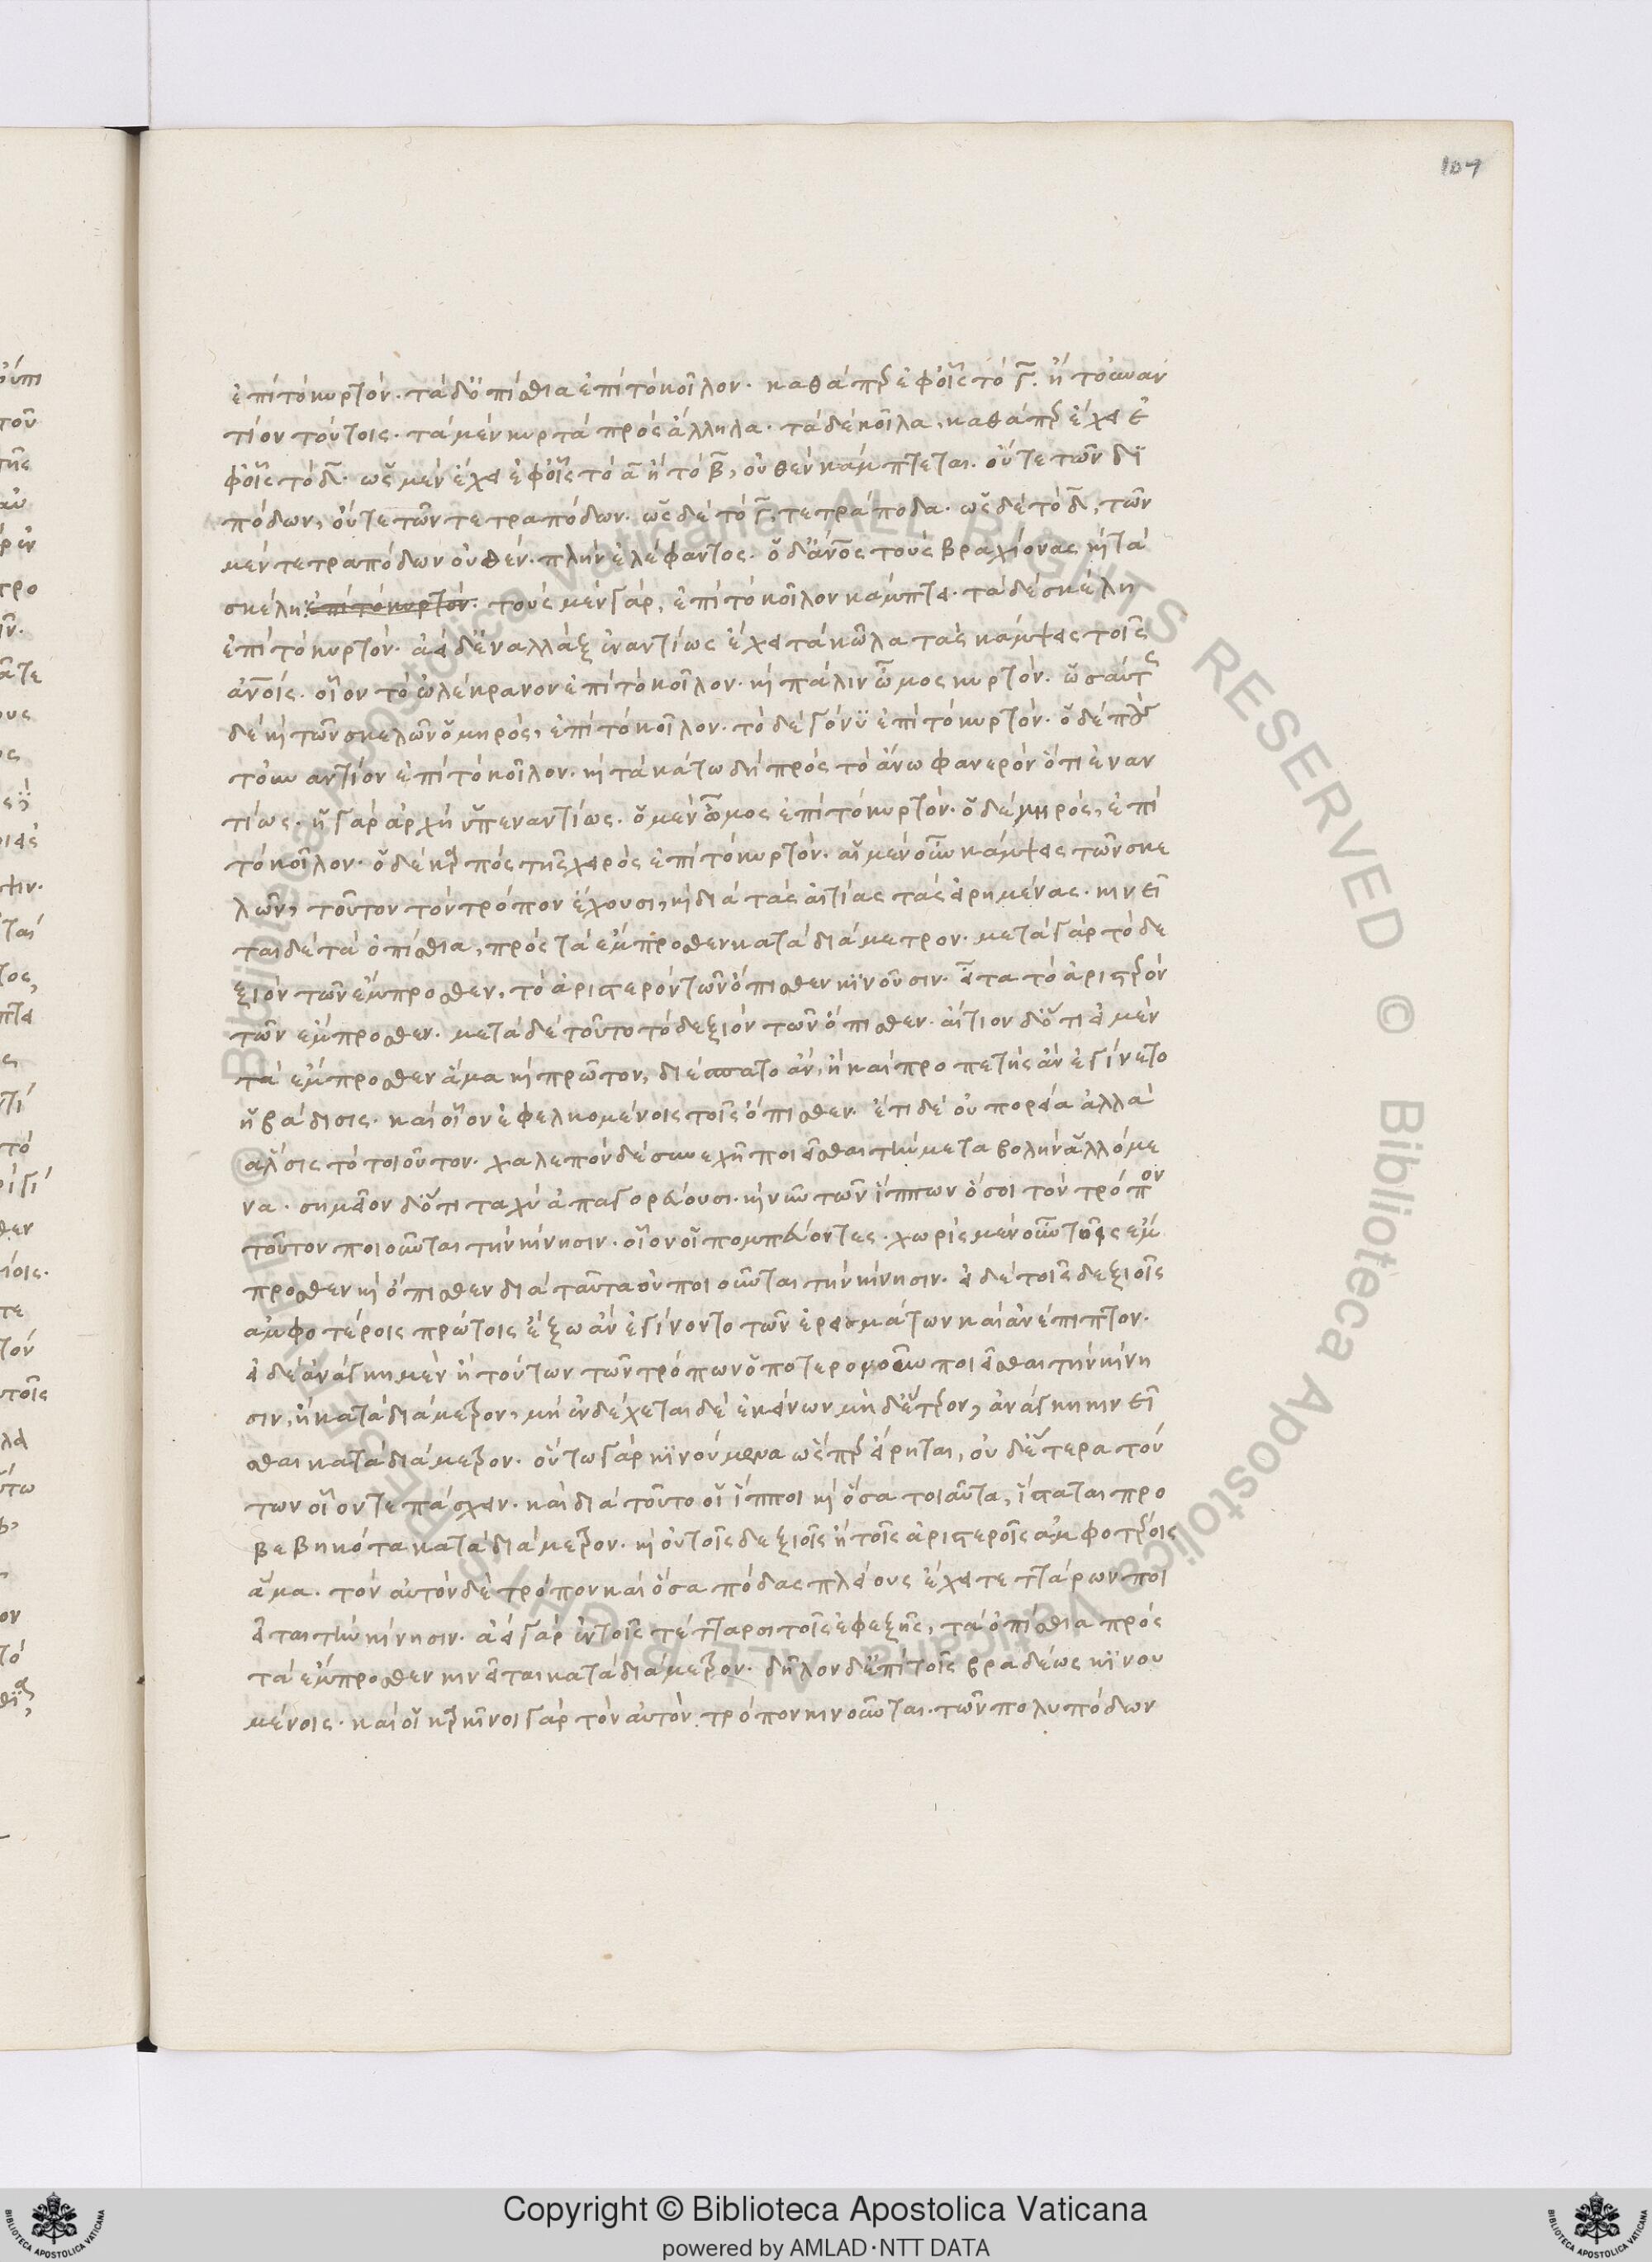 107
ἐπὶ τὸ κυρτόν. τὰ δ' ὀπίσθια ἐπὶ τὸ κοῖλον. καθάπερ ἐφ' οἷς τὸ Γ. ἢ τὸ ἐναν
τίον τούτοις. τὰ μὲν κυρτὰ πρὸς ἄλληλα. τὰ δὲ κοῖλα, καθάπερ ἔχει ἐ
φ' οἷς τὸ Δ. ὡς μὲν ἔχει ἐφ' οἷς τὸ Α ἢ τὸ Β, οὐθὲν κάμπτεται. οὔτε τῶν δι
πόδων, οὔτε τῶν τετραπόδων. ὡς δὲ τὸ Γ, τετράποδα. ὡς δὲ τὸ Δ, τῶν
μὲν τετραπόδων οὐθέν. πλὴν ἐλέφαντος. ὁ δ' ἄνος τοὺς βραχίονας κὶ τὰ
σκέλη. ἐπὶ τὸ κυρτόν. τοὺς μὲν γὰρ, ἐπὶ τὸ κοῖλον κάμπτει. τὰ δὲ σκέλη
ἐπὶ τὸ κυρτόν. ἀεὶ δ' ἐναλλὰξ ἐναντίως ἔχει τὰ κῶλα τὰς κάμψεις τοῖς
ἀνοίς. οἷον τὸ ὠλέκρανον ἐπὶ τὸ κοῖλον. κὶ πάλιν ὦμος κυρτόν. ὡσαύτς
δὲ κὶ τῶν σκελῶν ὁ μηρός, ἐπὶ τὸ κοῖλον. τὸ δὲ γόνυ ἐπὶ τὸ κυρτόν. ὁ δὲ
τὸ ἐναντίον ἐπὶ τὸ κοῖλον. κὶ τὰ κάτω δὴ πρὸς τὸ ἄνω φανερὸν ὅτι ἐναν
τίως. ἡ γὰρ ἀρχὴ ὑπεναντίως. ὁ μὲν ὦμος ἐπὶ τὸ κυρτόν. ὁ δὲ μηρός, ἐπὶ
τὸ κοῖλον. ὁ δὲ κρπὸς τῆς χειρὸς ἐπὶ τὸ κυρτόν. αἱ μὲν οὖν κάμψεις τῶν σκε
λῶν, τοῦτον τὸν τρόπον ἔχουσι, κὶ διὰ τὰς αἰτίας τὰς εἰρημένας. κινεῖ
ται δὲ τὰ ὀπίσθια, πρὸς τὰ ἔμπροσθεν κατὰ διάμετρον. μετὰ γὰρ τὸ δε
ξιὸν τῶν ἔμπροσθεν, τὸ ἀριστερὸν τῶν ὄπισθεν κινοῦσιν. εἶτα τὸ ἀριστερὸν
τῶν ἔμπροσθεν. μετὰ δὲ τοῦτο τὸ δεξιὸν τῶν ὄπισθεν. αἴτιον δ' ὅτι εἰ μὲν
τὰ ἔμπροσθεν ἅμα κὶ πρῶτον, διεσπᾶτο ἄν, ἢ καὶ προπετὴς ἂν ἐγίνετο
ἡ βάδισις. καὶ οἷον ἐφελκομένοις τοῖς ὄπισθεν. ἔτι δὲ οὐ πορεία ἀλλὰ
ἅλσις τὸ τοιοῦτον. χαλεπὸν δὲ συνεχῆ ποιεῖσθαι τὴν μεταβολὴν ἁλλόμε
να. σημεῖον δ' ὅτι ταχὺ ἀπαγορεύουσι. κὶ νῦν τῶν ἵππων ὅσοι τὸν τρόπον
τοῦτον ποιοῦνται τὴν κίνησιν. οἷον οἱ πομπεύοντες. χωρὶς μὲν οὖν τοῖς ἔμ
προσθεν κὶ ὄπισθεν διὰ ταῦτα οὐ ποιοῦνται τὴν κίνησιν. εἰ δὲ τοῖς δεξιοῖς
ἀμφοτέροις πρώτοις ἔξω ἂν ἐγίνοντο τῶν ἐρεισμάτων καὶ ἂν ἔπιπτον.
εἰ δὲ ἀνάγκη μὲν ἢ τούτων τῶν τρόπων ὁποτερονοῦν ποιεῖσθαι τὴν κίνη
σιν, ἢ κατὰ διάμετρον, μὴ ἐνδέχεται δὲ ἐκείνων μηδέτερον, ἀνάγκη κινεῖ
σθαι κατὰ διάμετρον. οὕτω γὰρ κινούμενα ὥσπερ εἴρηται, οὐδέτερα τού
των οἷόν τε πάσχειν. καὶ διὰ τοῦτο οἱ ἵπποι κὶ ὅσα τοιαῦτα, ἵσταται προ
βεβηκότα κατὰ διάμετρον. κὶ οὐ τοῖς δεξιοῖς ἢ τοῖς ἀριστεροῖς ἀμφοτέροις
ἅμα. τὸν αὐτὸν δὲ τρόπον καὶ ὅσα πόδας πλείους ἔχει τεττάρων ποι
εῖται τὴν κίνησιν. ἀεὶ γὰρ ἐν τοῖς τέτταρσι τοῖς ἐφεξῆς, τὰ ὀπίσθια πρὸς
τὰ ἔμπροσθεν κινεῖται κατὰ διάμετρον. δῆλον δ' ἐπὶ τοῖς βραδέως κινου
μένοις. καὶ οἱ κρκῖνοι γὰρ τὸν αὐτὸν τρόπον κινοῦνται. τῶν πολυπόδων
© Biblioteca Apostolica Vaticana ALL RIGHTS RESERVED
Copyright © Biblioteca Apostolica Vaticana
powered by AMLAD·NTT DATA